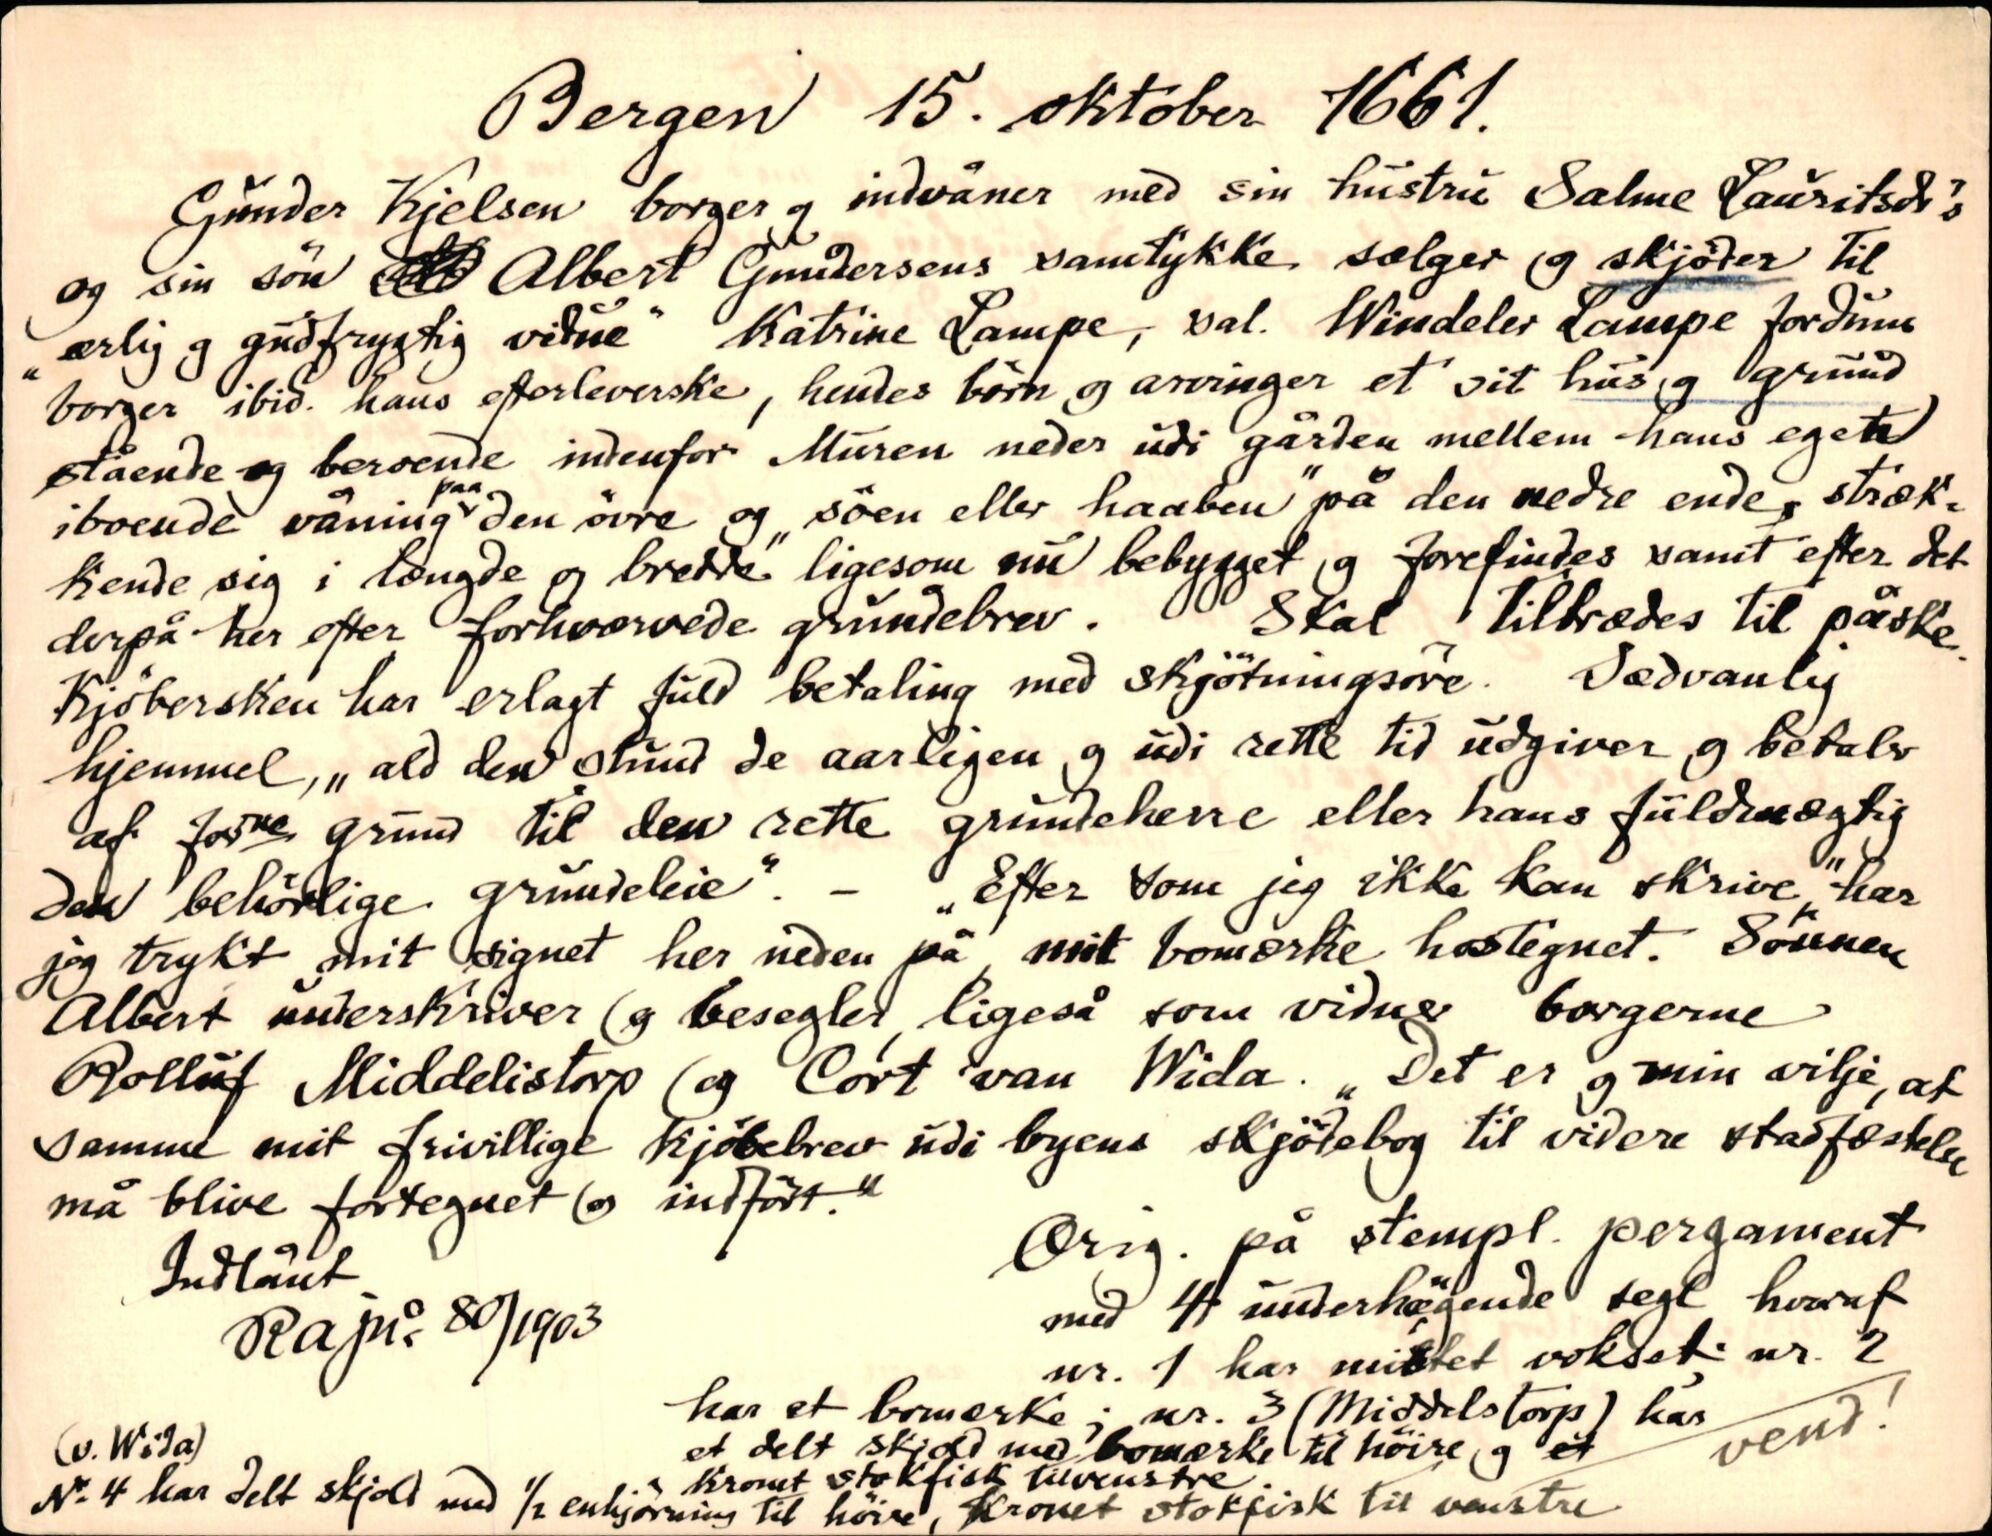 Bergen 15. oktober 1661.
Gunder Kjelsen borger og indvåner med sin hustru Salme Lauritsd's
og sin sön Albert Gundersens samtykke sælger og skjöder til
"ærlig og gudfrygtig vidue" Katrine Lampe, sal. Windeler Lampe fordum
borger ibid. hans efterleverske, hendes börn og arvinger et sit hus og grund
stående og beroende indenfor Muren neder udi gården mellem hans egete
iboende våning paa den övre og "söen eller haaben" på den nedre ende, stræk-
kende sig i længde og bredde "ligesom nu bebygget og forefindes samt efter det
derpå her efter forhvervede grundebrev. Skal tiltrædes til påske.
Kjöbersken har erlagt fuld betaling med skjötningsöre. Sædvanlig
hjemmel, "ald den stund de aarligen og udi rette tid udgiver og betaler
af forne grund til den rette grundeherre eller hans fuldmægtig
den behörlige grundeleie". - "Efter som jeg ikke kan skrive", har
jeg trykt mit signet her neden på, mit bomærke hostegnet. Sönnen
Albert underskriver og besegler, ligeså som vidner borgerne
Rolluf Middelistorp og Cort van Wida. "Det er og min vilje, at
samme mit frivillige kjöbebrev udi byens skjödebog til videre stadfæstelse
må blive fortegnet og indfört."
Orig. på stempl. pergament
Indlånt
med 4 underhægende segl hvoraf
Rajnr. 80/1903
nr. 1 har mistet vokset; nr. 2
har et bomærke; nr. 3 (Middelstorp) har
vend!
et delt skjold med bomærke til höire og et
(v. Wida)
kronet stokfisk tilvenstre
Nr. 4 har delt skjold med 1/2 enhjörning til höire, kronet stokfisk til venstre